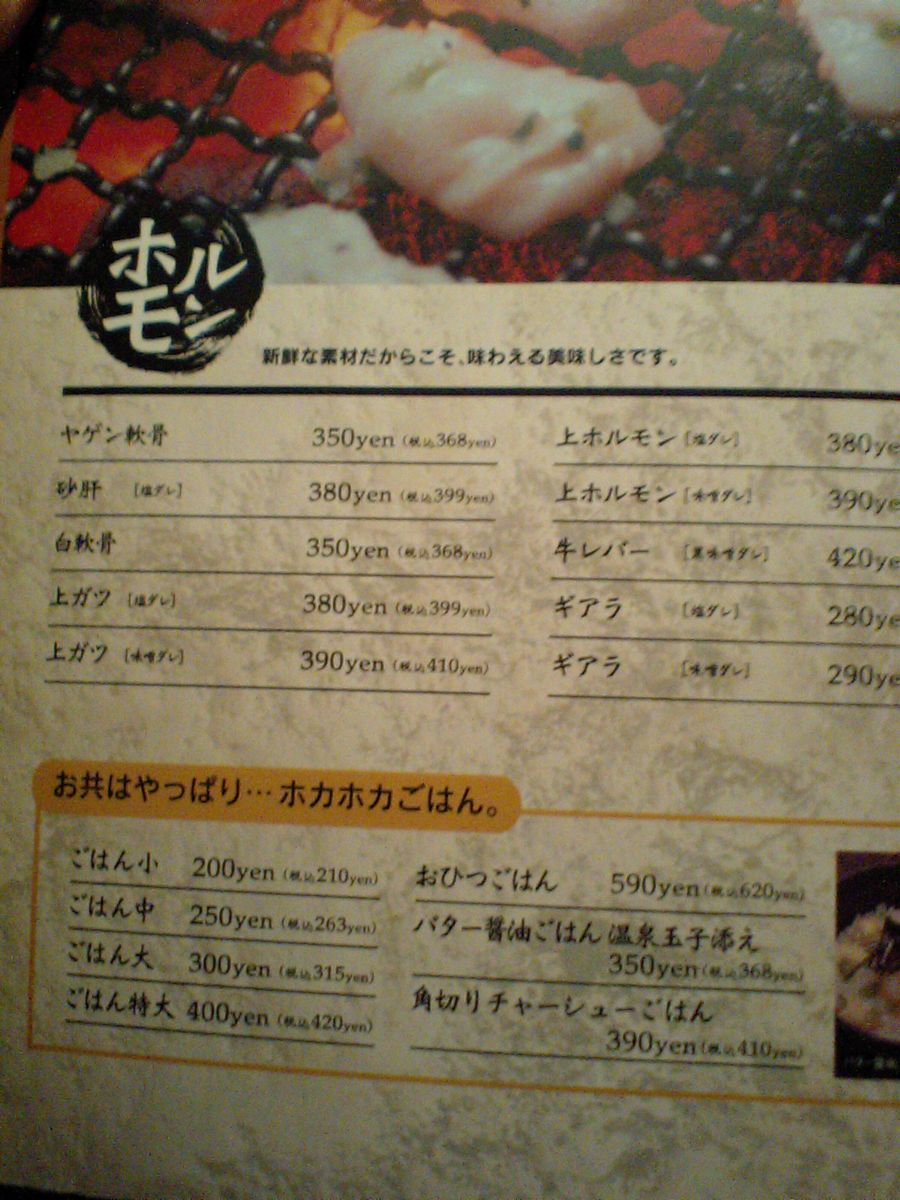 ホルモン
新鮮な素材だからこそ、味わえる美味しさです。
ヤゲン軟骨 350yen (税込368yen)
砂肝 [塩ダレ] 380yen (税込399yen)
白軟骨 350yen (税込368yen)
上ガツ [塩ダレ] 380yen (税込399yen)
上ガツ [味噌ダレ] 390yen (税込410yen)
上ホルモン [塩ダレ] 380ye
上ホルモン [味噌ダレ] 390ye
牛レバー [黒味噌ダレ] 420ye
ギアラ [塩ダレ] 280ye
ギアラ [味噌ダレ] 290ye
お共はやっぱり…ホカホカごはん。
ごはん小 200yen (税込210yen)
ごはん中 250yen (税込263yen)
ごはん大 300yen (税込315yen)
ごはん特大 400yen (税込420yen)
おひつごはん 590yen (税込620yen)
バター醤油ごはん 温泉玉子添え
350yen (税込368yen)
角切りチャーシューごはん
390yen (税込410yen)